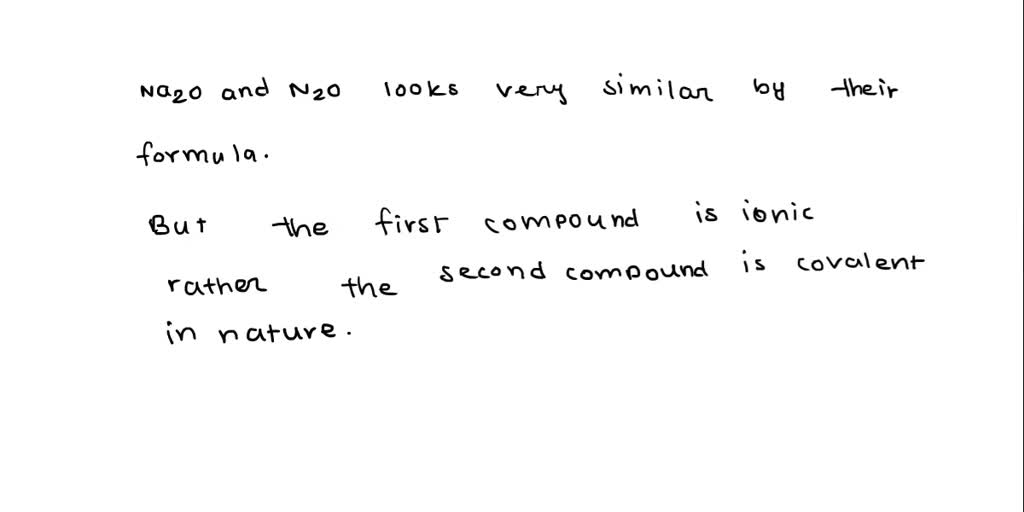 Na2O and N2O looks very similar by their
formula.
But the first compound is ionic
rather the second compound is covalent
in nature.